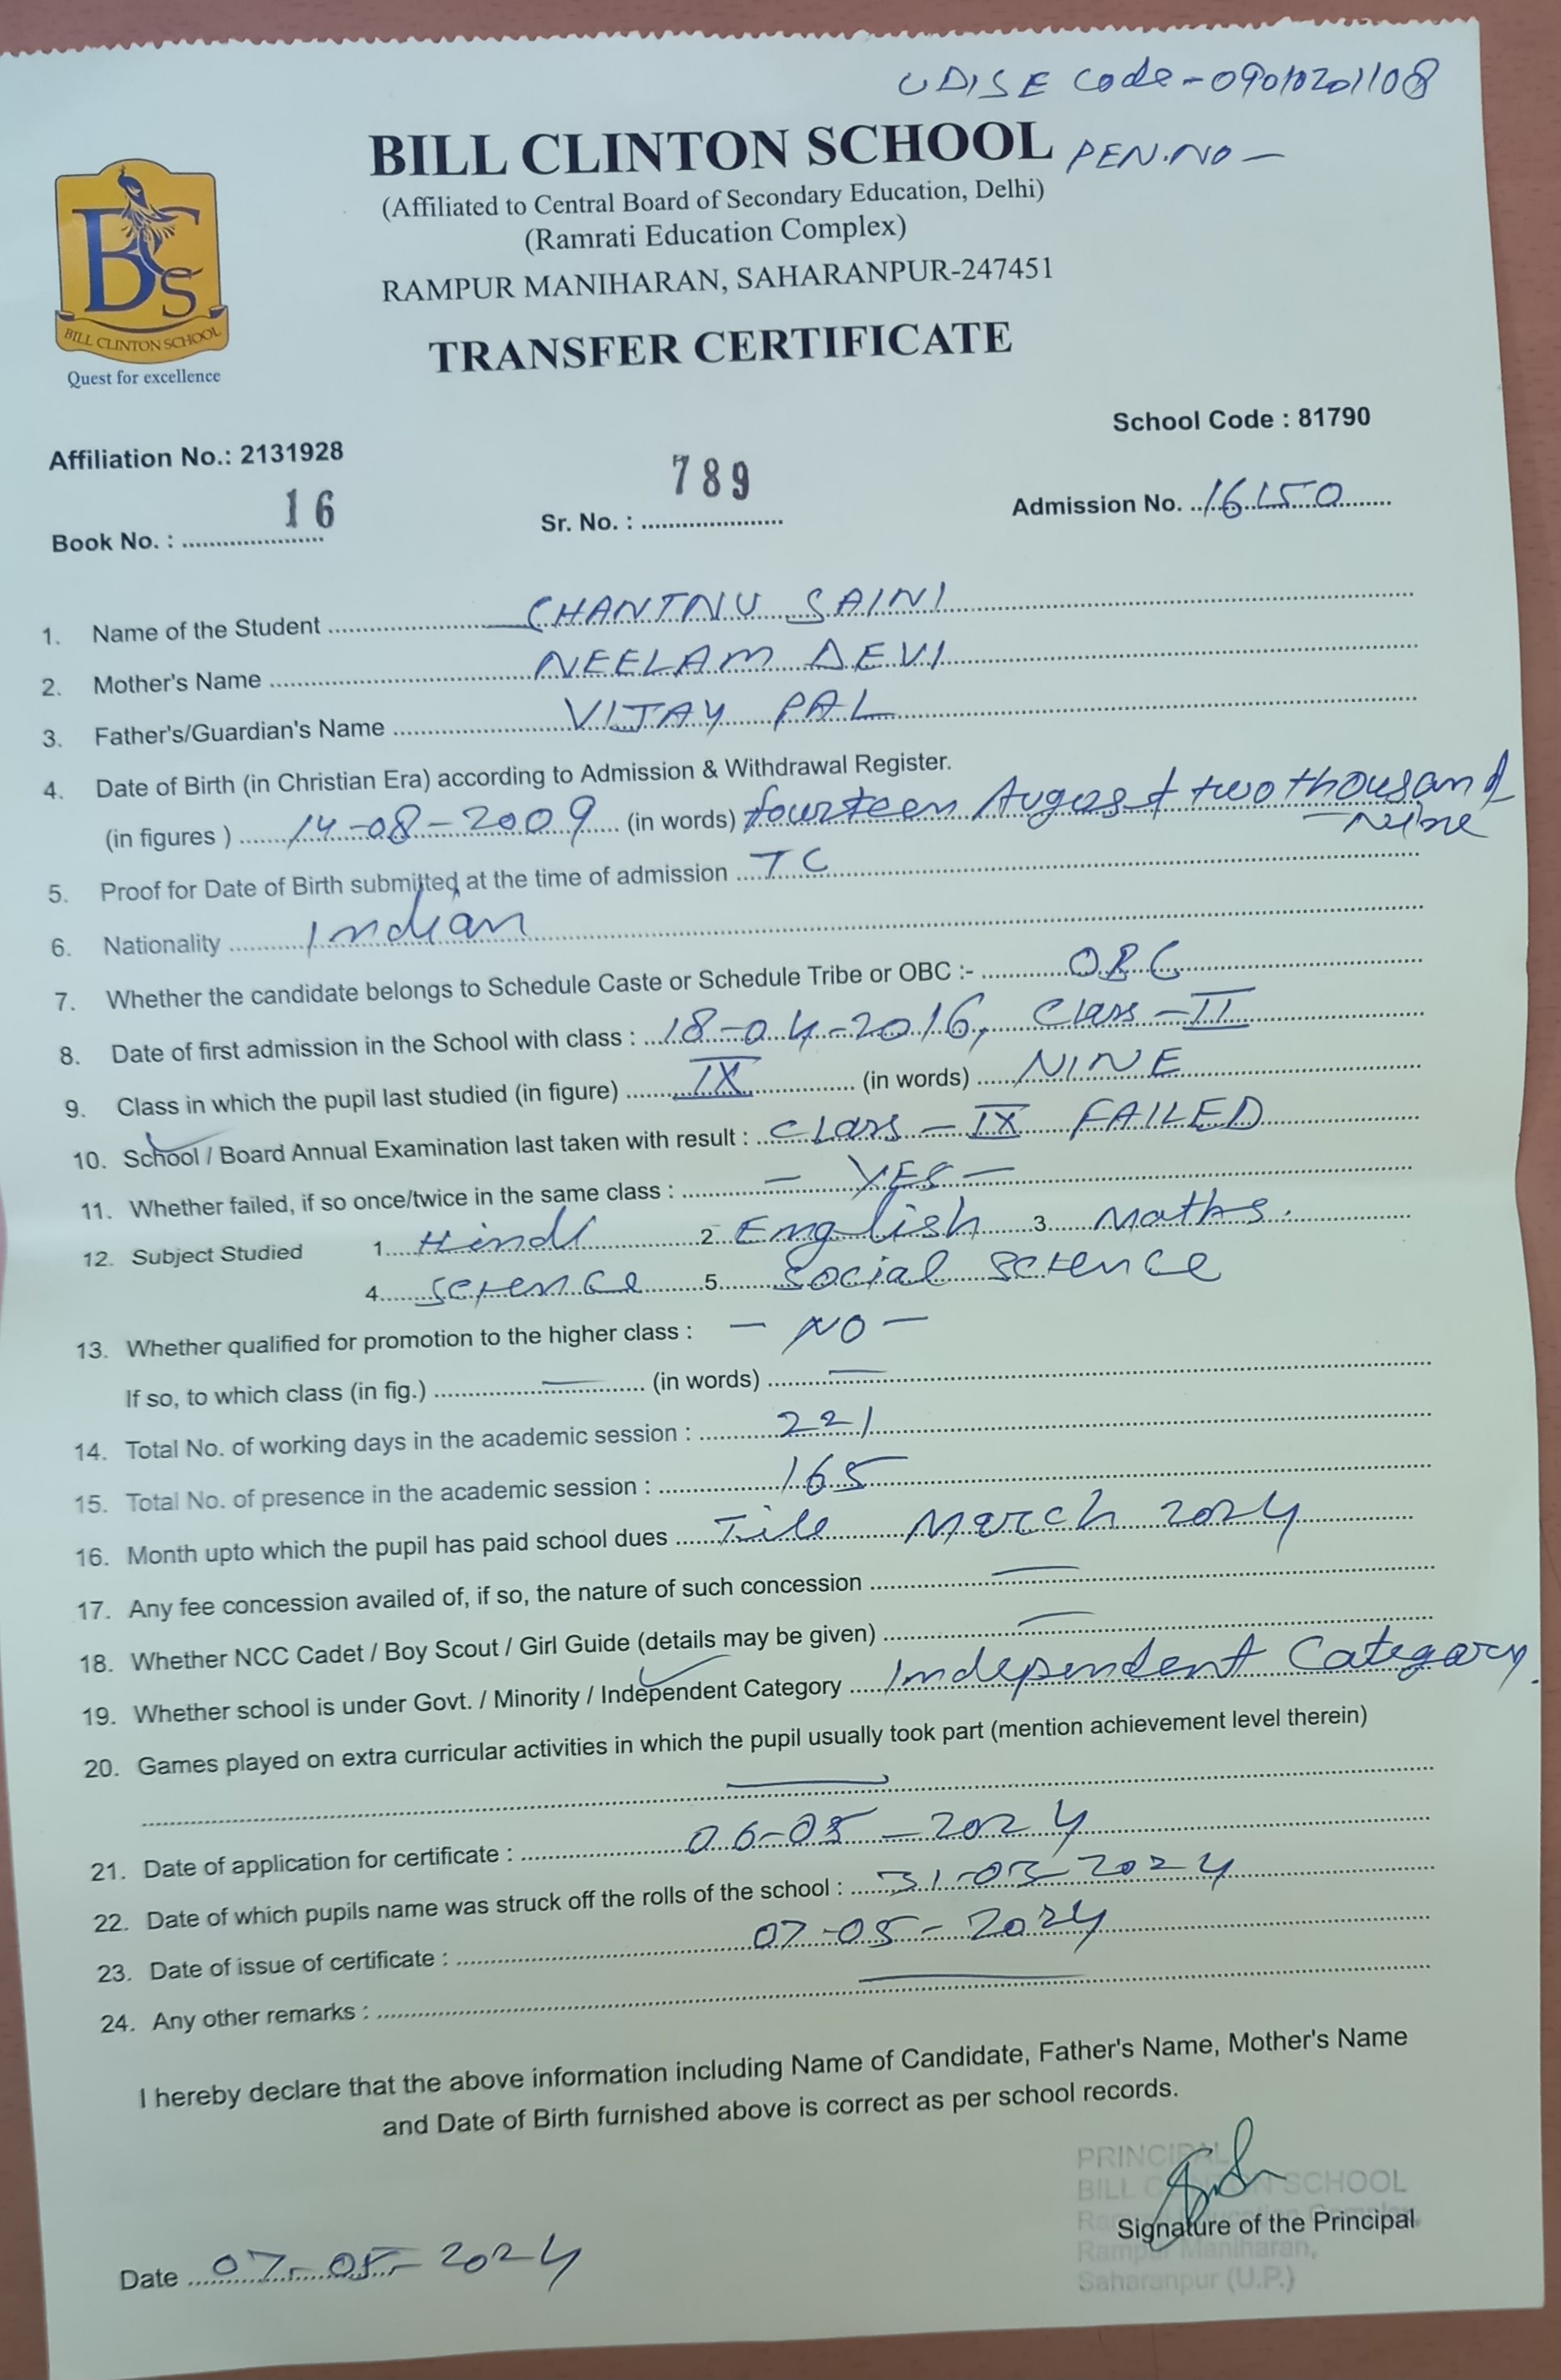 UDISE Code - 09010201108
BILL CLINTON SCHOOL
PEN.NO —
(Affiliated to Central Board of Secondary Education, Delhi)
(Ramrati Education Complex)
RAMPUR MANIHARAN, SAHARANPUR-247451
TRANSFER CERTIFICATE
BCS
BILL CLINTON SCHOOL
Quest for excellence
School Code : 81790
Affiliation No.: 2131928
Book No. : 16 Sr. No. : 789 Admission No. 16150
1. Name of the Student CHANTNU SAINI
2. Mother's Name NEELAM DEVI
3. Father's/Guardian's Name VIJAY PAL
4. Date of Birth (in Christian Era) according to Admission & Withdrawal Register.
(in figures ) 14-08-2009 (in words) fourteen August two thousand
- Nine
5. Proof for Date of Birth submitted at the time of admission TC
6. Nationality Indian
7. Whether the candidate belongs to Schedule Caste or Schedule Tribe or OBC :- OBC
8. Date of first admission in the School with class : 18-04-2016, Class - II
9. Class in which the pupil last studied (in figure) IX (in words) NINE
10. School / Board Annual Examination last taken with result : Class - IX FAILED
11. Whether failed, if so once/twice in the same class : — YES —
12. Subject Studied 1. Hindi 2. English 3. Maths.
4. Science 5. Social Science
13. Whether qualified for promotion to the higher class : — NO —
If so, to which class (in fig.) — (in words) —
14. Total No. of working days in the academic session : 221
15. Total No. of presence in the academic session : 165
16. Month upto which the pupil has paid school dues Till March 2024
17. Any fee concession availed of, if so, the nature of such concession —
18. Whether NCC Cadet / Boy Scout / Girl Guide (details may be given) —
19. Whether school is under Govt. / Minority / Independent Category Independent Category.
20. Games played on extra curricular activities in which the pupil usually took part (mention achievement level therein)
—
21. Date of application for certificate : 06-05-2024
22. Date of which pupils name was struck off the rolls of the school : 31-03-2024
23. Date of issue of certificate : 07-05-2024
24. Any other remarks : —
I hereby declare that the above information including Name of Candidate, Father's Name, Mother's Name
and Date of Birth furnished above is correct as per school records.
PRINCIPAL
BILL CLINTON SCHOOL
Signature of the Principal
Rampur Maniharan,
Saharanpur (U.P.)
Date 07-05-2024